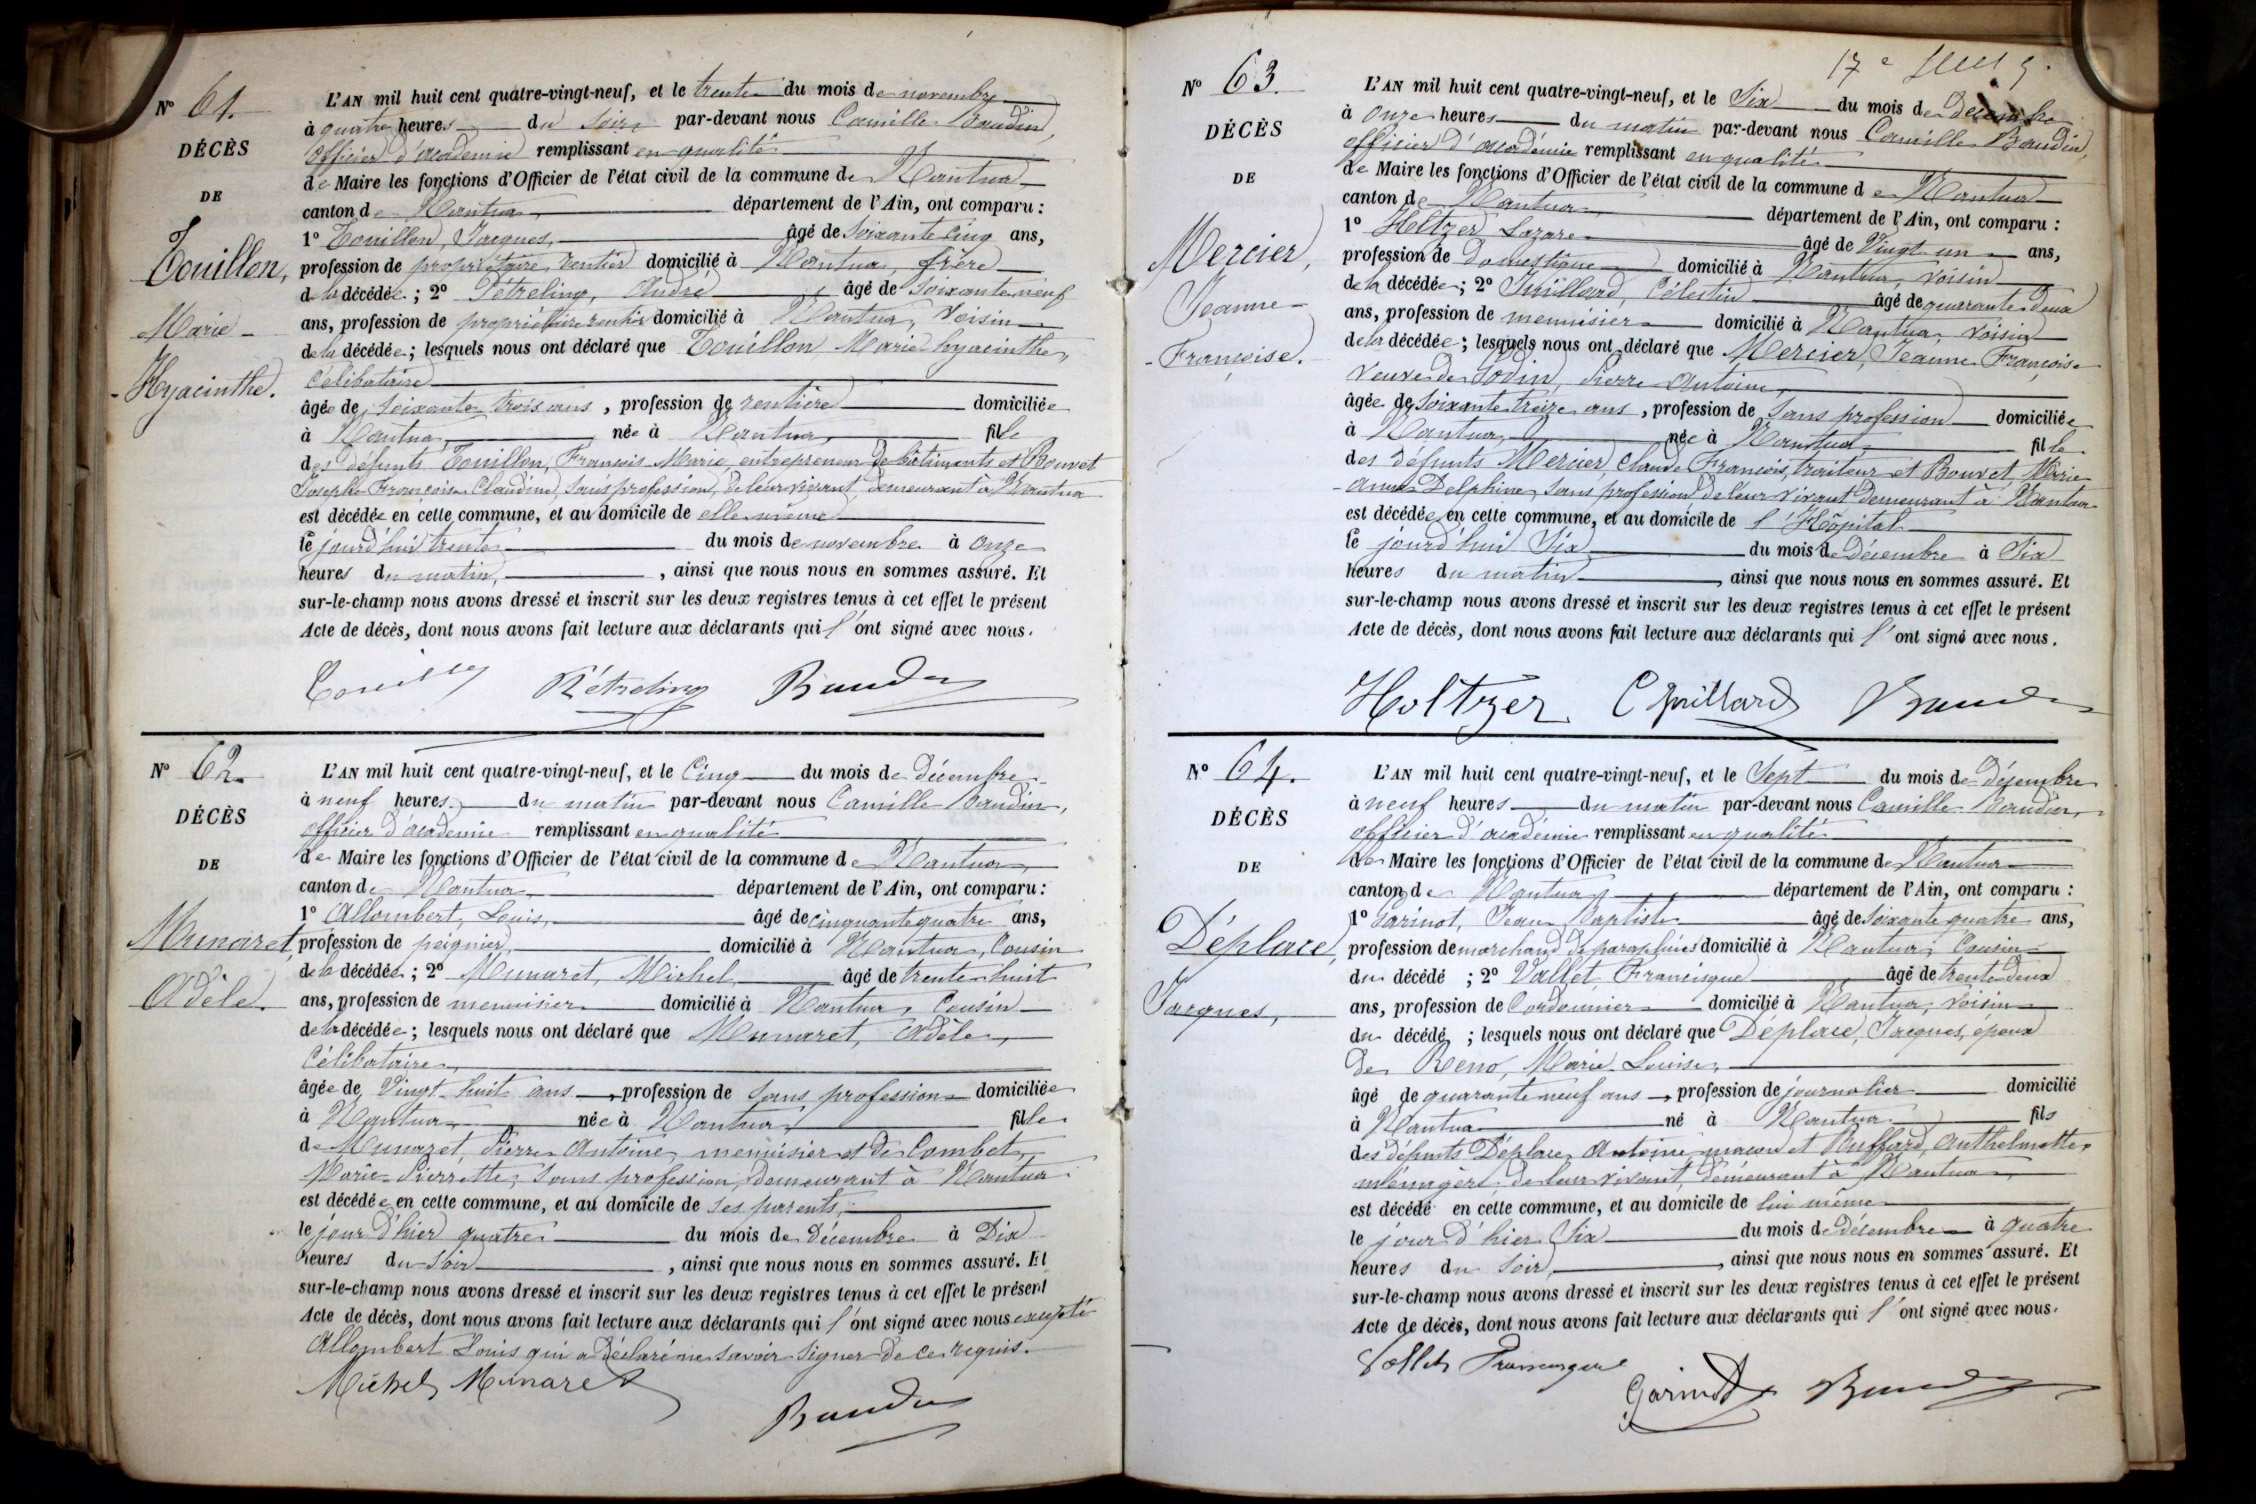 N° 61.
DÉCÈS
DE
Touillon,
Marie
Hyacinthe.
L'AN mil huit cent quatre-vingt-neuf, et le trente du mois de novembre
à quatre heures du soir, par-devant nous Camille Baudin,
officier d'académie remplissant en qualité
de Maire les fonctions d'Officier de l'état civil de la commune de Nantua
canton de Nantua, département de l'Ain, ont comparu :
1° Touillon, Jacques, âgé de soixante cinq ans,
profession de propriétaire rentier domicilié à Nantua, frère
de la décédée ; 2° Pétreling, André âgé de soixante neuf
ans, profession de propriétaire rentier domicilié à Nantua, voisin
de la décédée ; lesquels nous ont déclaré que Touillon Marie hyacinthe,
Célibataire
âgée de soixante trois ans, profession de rentière domiciliée
à Nantua, née à Nantua, fille
des défunts Touillon, François Marie, entrepreneur de bâtiments et Bouvet
Josephe Françoise Claudine, sans profession, de leur vivant demeurant à Nantua
est décédée en cette commune, et au domicile de elle même
le jourd'hui trente du mois de novembre à onze
heures du matin, , ainsi que nous nous en sommes assuré. Et
sur-le-champ nous avons dressé et inscrit sur les deux registres tenus à cet effet le présent
Acte de décès, dont nous avons fait lecture aux déclarants qui l'ont signé avec nous.
Pétreling Baudin
N° 62.
DÉCÈS
DE
Munaret,
Adèle.
L'AN mil huit cent quatre-vingt-neuf, et le cinq du mois de décembre
à neuf heures du matin par-devant nous Camille Baudin,
officier d'académie remplissant en qualité
de Maire les fonctions d'Officier de l'état civil de la commune de Nantua,
canton de Nantua département de l'Ain, ont comparu :
1° Allombert, Louis, âgé de cinquante quatre ans,
profession de peignier domicilié à Nantua, Cousin
de la décédée ; 2° Munaret, Michel, âgé de trente huit
ans, profession de menuisier domicilié à Nantua, Cousin
de la décédée ; lesquels nous ont déclaré que Munaret, Adèle,
Célibataire,
âgée de vingt huit ans, profession de sans profession domiciliée
à Nantua, née à Nantua, fille
de Munaret, Pierre Antoine, menuisier et de Combet,
Marie Pierrette, sans profession, demeurant à Nantua
est décédée en cette commune, et au domicile de ses parents,
le jour d'hier quatre du mois de décembre à Dix
heures du soir , ainsi que nous nous en sommes assuré. Et
sur-le-champ nous avons dressé et inscrit sur les deux registres tenus à cet effet le présent
Acte de décès, dont nous avons fait lecture aux déclarants qui l'ont signé avec nous excepté
Allombert Louis qui a déclaré ne savoir signer de ce requis.
Michel Munaret
Baudin
17e
N° 63.
DÉCÈS
DE
Mercier,
Jeanne
Françoise.
L'AN mil huit cent quatre-vingt-neuf, et le six du mois de décembre
à onze heures du matin par-devant nous Camille Baudin,
officier d'académie remplissant en qualité
de Maire les fonctions d'Officier de l'état civil de la commune de Nantua
canton de Nantua, département de l'Ain, ont comparu :
1° Holtzer Lazare âgé de vingt un ans,
profession de domestique domicilié à Nantua, voisin
de la décédée ; 2° Juillard, Célestin âgé de quarante deux
ans, profession de menuisier domicilié à Nantua, voisin
de la décédée ; lesquels nous ont déclaré que Mercier, Jeanne Françoise
veuve de Jodin, Pierre Antoine,
âgée de soixante treize ans, profession de sans profession domiciliée
à Nantua, née à Nantua fille
des défunts Mercier, Claude François, traiteur et Bouvet Marie
Anne Delphine, sans profession de leur vivant demeurant à Nantua
est décédée en cette commune, et au domicile de l'Hôpital
le jourd'hui six du mois de décembre à six
heures du matin , ainsi que nous nous en sommes assuré. Et
sur-le-champ nous avons dressé et inscrit sur les deux registres tenus à cet effet le présent
Acte de décès, dont nous avons fait lecture aux déclarants qui l'ont signé avec nous.
Holtzer C Juillard Baudin
N° 64.
DÉCÈS
DE
Déplace,
Jacques,
L'AN mil huit cent quatre-vingt-neuf, et le sept du mois de décembre
à neuf heures du matin par-devant nous Camille Baudin,
officier d'académie remplissant en qualité
de Maire les fonctions d'Officier de l'état civil de la commune de Nantua
canton de Nantua, département de l'Ain, ont comparu :
1° Garinot, Jean Baptiste âgé de soixante quatre ans,
profession de marchand de parapluies domicilié à Nantua, Cousin
du décédé ; 2° Vallet, Francisque âgé de trente deux
ans, profession de Cordonnier domicilié à Nantua, voisin
du décédé, ; lesquels nous ont déclaré que Déplace, Jacques, époux
de Reno, Marie Louise,
âgé de quarante neuf ans, profession de journalier domicilié
à Nantua né à Nantua fils
des défunts Déplace Antoine maçon et Ruffard, Anthelmette,
ménagère de leur vivant, demeurant à Nantua,
est décédé en cette commune, et au domicile de lui même
le jour d'hier six du mois de décembre à quatre
heures du soir, , ainsi que nous nous en sommes assuré. Et
sur-le-champ nous avons dressé et inscrit sur les deux registres tenus à cet effet le présent
Acte de décès, dont nous avons fait lecture aux déclarants qui l'ont signé avec nous.
Vallet Francisque
Garinot Baudin